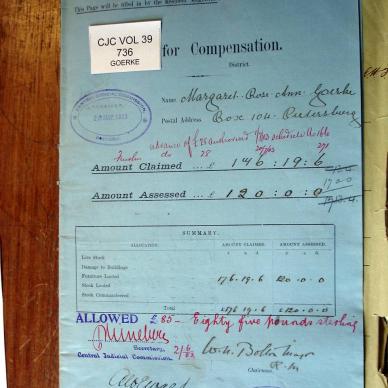 This Page will be filled in by the
CJC VOL 39
736
GOERKE
for Compensation.
District.
CENTRAL JUDICIAL COMMISSION
Name, Margaret Rose Ann Goerke
Postal Address Box 104 Pietersburg
advance of £28 authorized
Amount Claimed ... £ 146 : 19 : 6
Amount Assessed ... £ 120 : 0 : 0
SUMMARY.
ALLOCATION. AMOUNT CLAIMED AMOUNT ASSESSED
Live Stock
Damage to Buildings
Furniture Looted 176. 19. 6 120. 0. 0
Stock Looted
Stock Commandeered
Total £176 19. 6 £120. 0. 0
ALLOWED £85 - Eighty five pounds sterling
Secretary, 2/6/03
Central Judicial Commission
Chairman.
R.M.